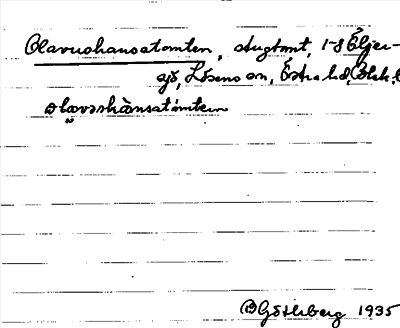 Olavushansatomten, stugtomt, 1-8 Öljer-
sjö, Lösens sn, Östra hd, Blek.l.
olavushànsatómten
B Göterberg 1935